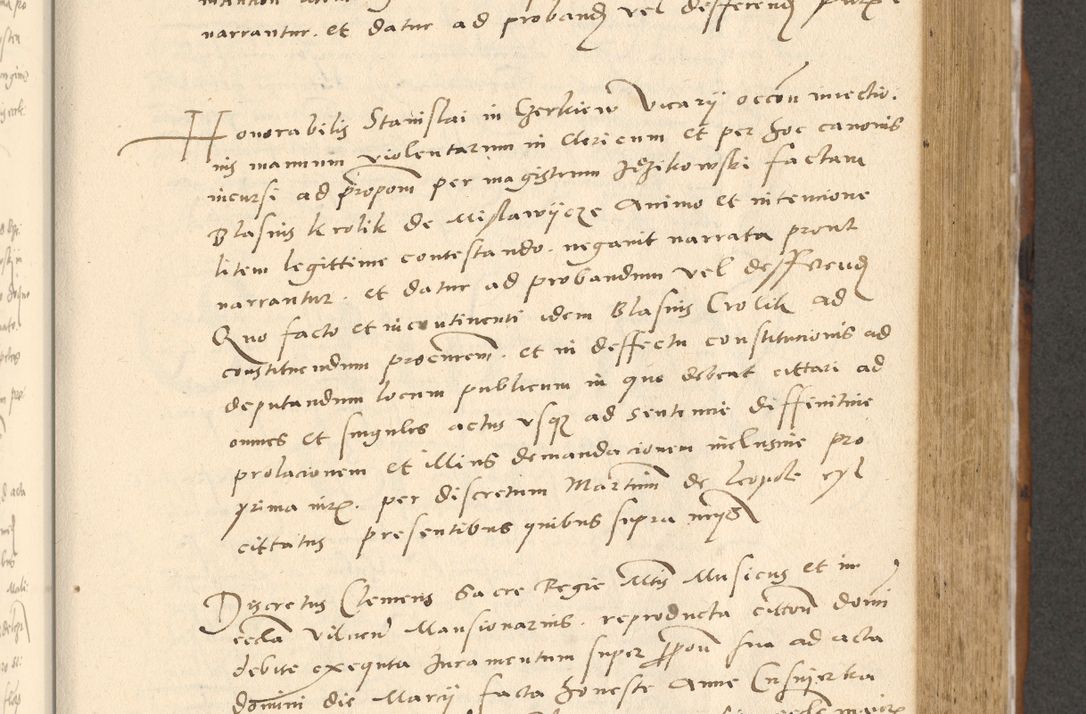 narrantur. et datur ad proband vel defferend
Honorabilis Stanislai in Czerkiew Vicarij occõn iniectio
nis manuum violentarum in clericum et per hoc canonis
incursi ad propon per magistrum Jdzikowski factam
Blasius krolik de Mislawijcze Animo et intencione
litem legittime contestando. negauit narrata prout
narrantur. et datur ad probandum vel deffferend
Quo facto et incontinenti idem Blasius Crolik ad
constituendum procurem. et in deffectu constitucionis ad
deputandum locum publicum in quo debeat cittari ad
omnes et singulos actus vsque ad sentencie diffinitiue
prolacionem et illius demandacionem inclusiue pro
prima per discretum Martinum de Leopole
cittatus presentibus quibus supra
Discretus Clemens Sacre Regie Mtis Musicus et in
eccla Vilnen Mansionarius. reproducta cittõn domi
debite exequta Juramentum super ppõn sua ad acta
domini die Marcij facta honeste Anne